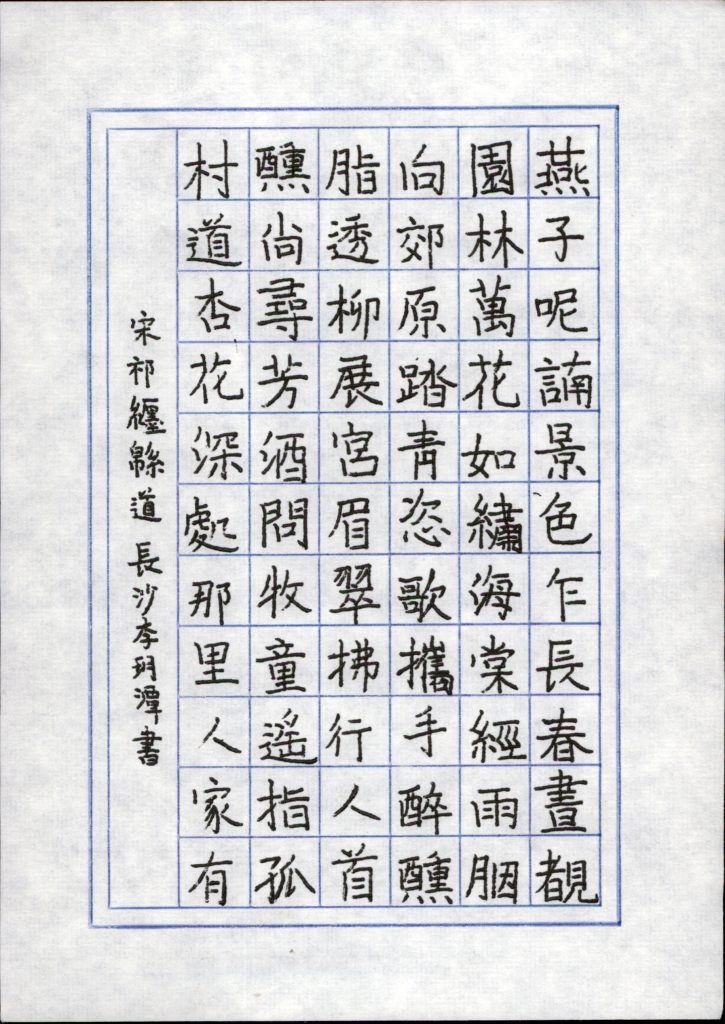 燕子呢諵景色乍長春晝覩
園林萬花如繡海棠經雨胭
脂透柳展宮眉翠拂行人首
向郊原踏青恣歌攜手醉醺
醺尚尋芳酒問牧童遙指孤
村道杏花深處那里人家有
宋祁纏緜道 長沙李玥潭書